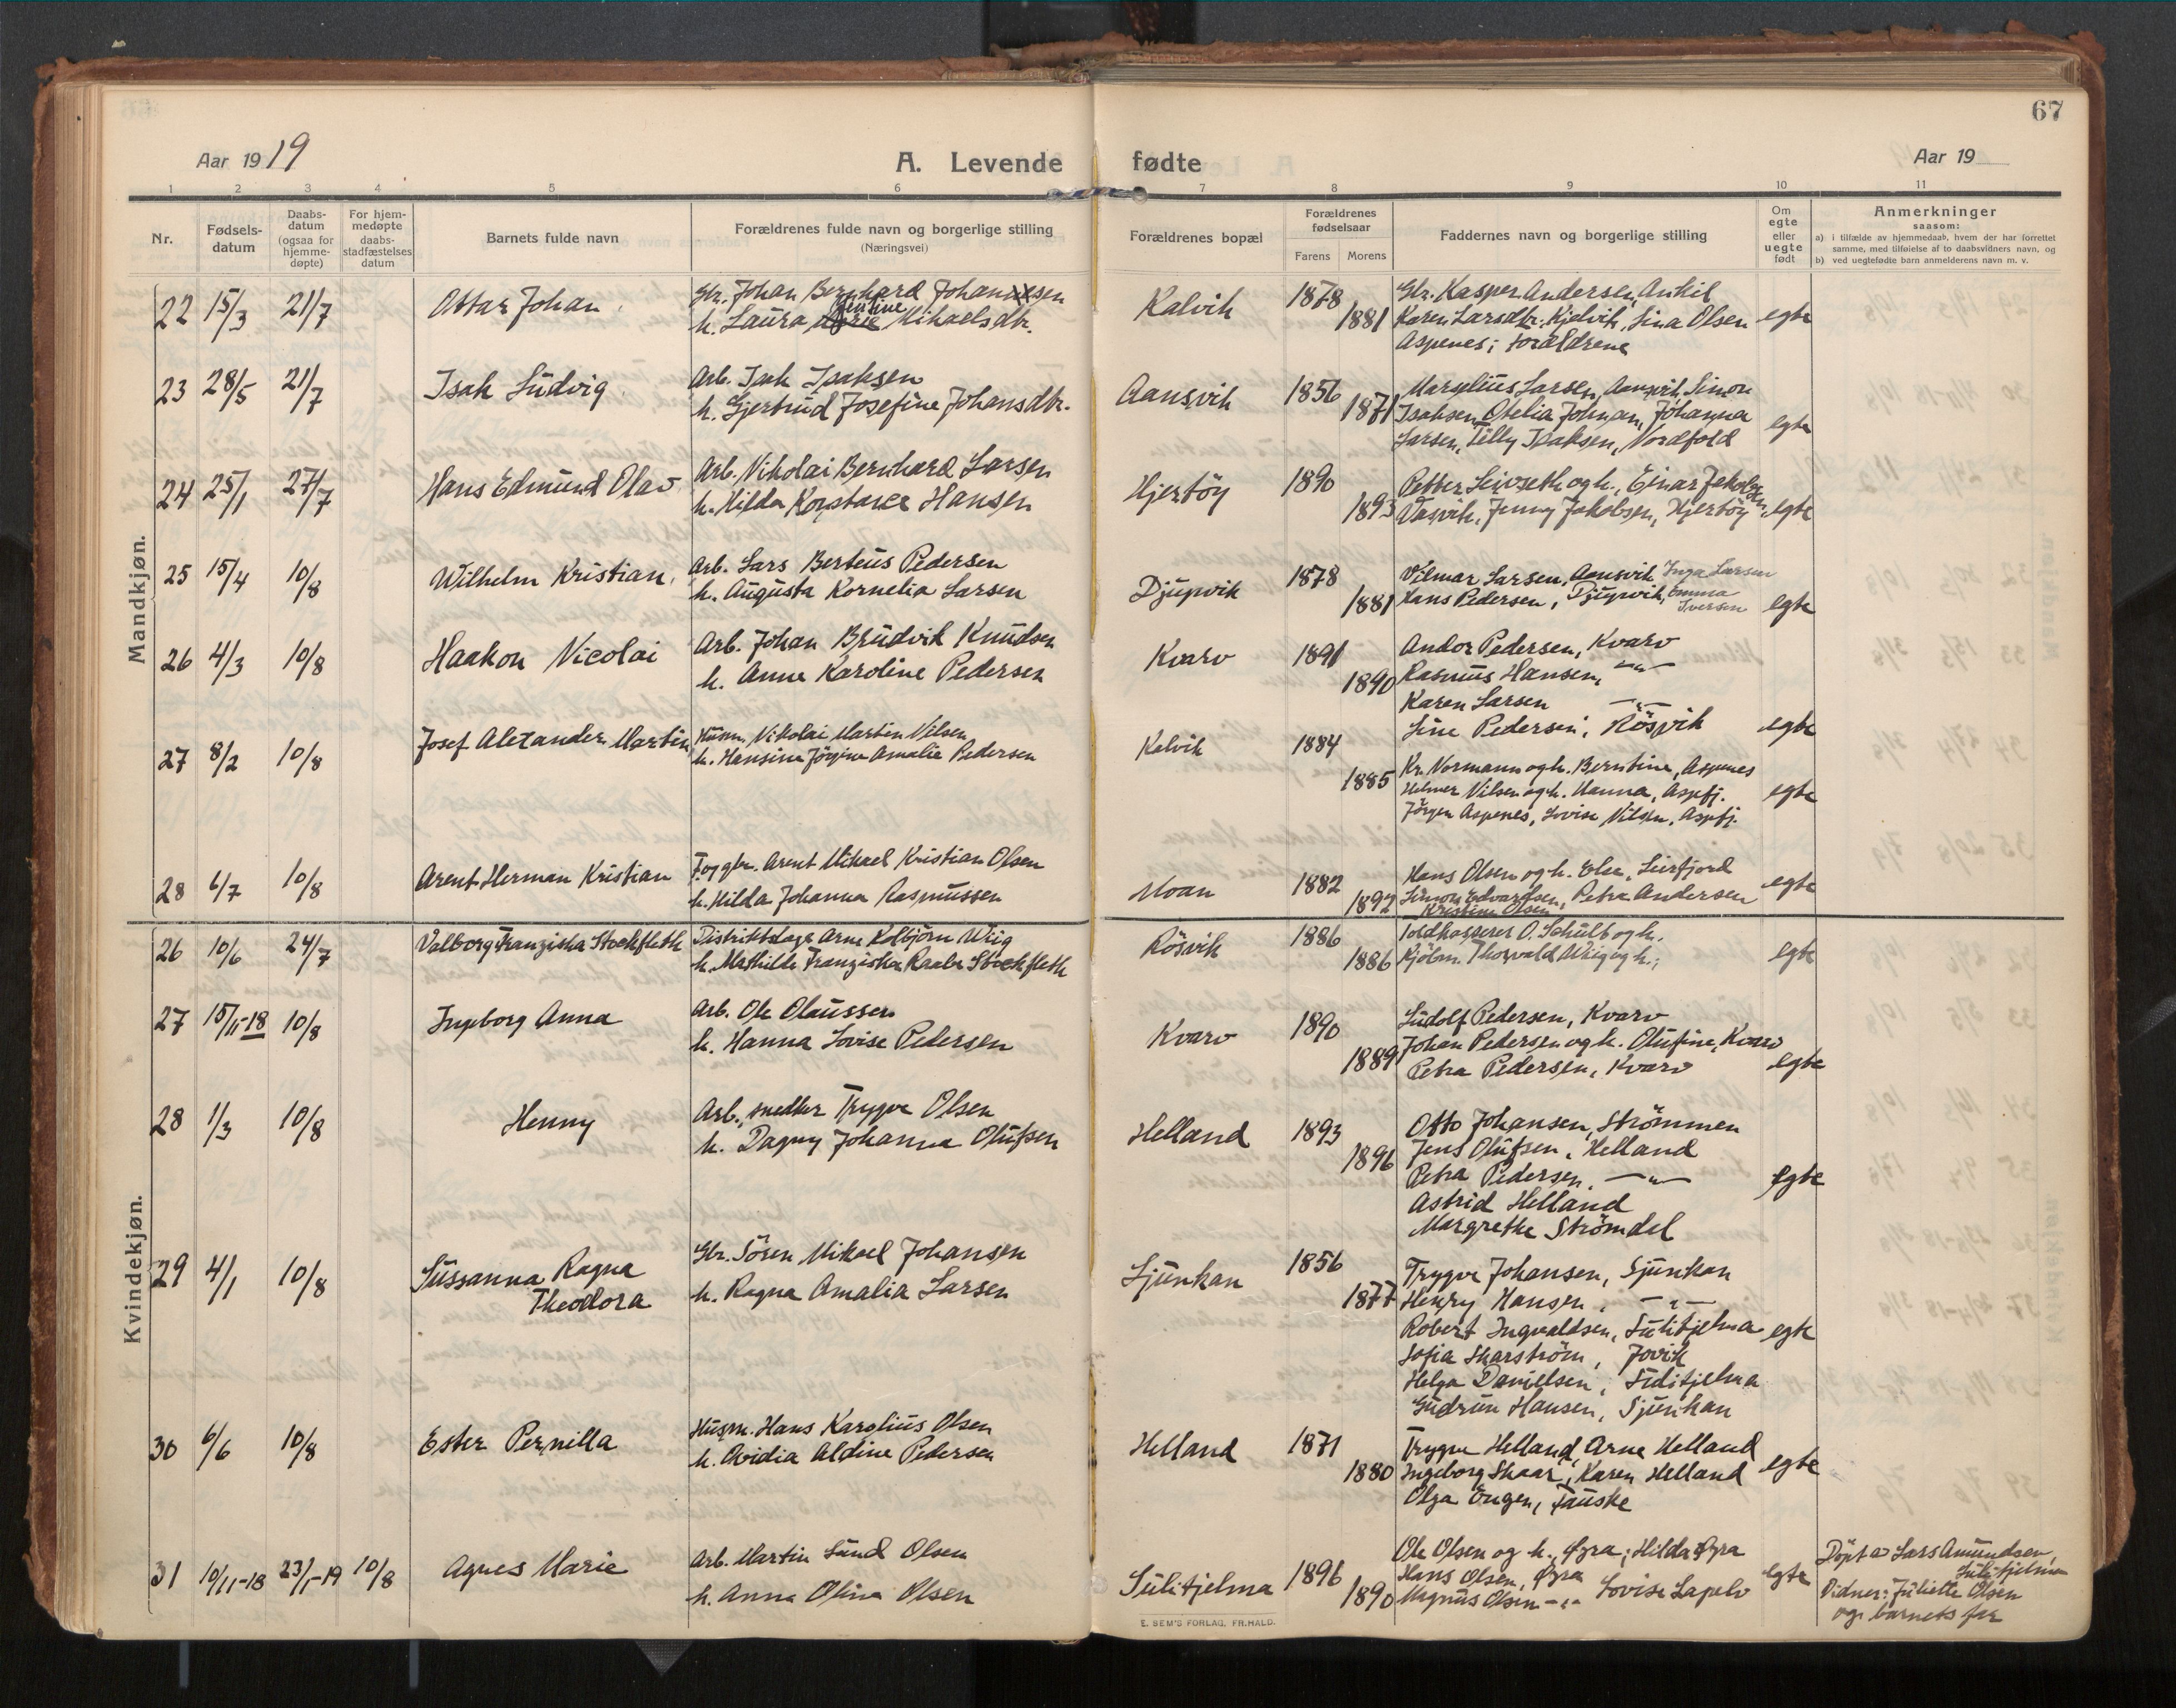 67
Aar 1919
A. Levende fødte
Aar 19
1 2 3 4 5 6 7 8 9 10 11
Nr.
Fødsels-
datum
Daabs-
datum
(ogsaa for
hjemme-
døpte)
For hjem-
medøpte
daabs-
stadfæstelses
datum
Barnets fulde navn
Forældrenes fulde navn og borgerlige stilling
(Næringsvei)
Forældrenes bopæl
Forældrenes
fødselsaar
Farens Morens
Faddernes navn og borgerlige stilling
Om
egte
eller
uegte
født
Anmerkninger
saasom:
a) i tilfælde av hjemmedaab, hvem der har forrettet
samme, med tilføielse af to daabsvidners navn, og
b) ved uegtefødte barn anmelderens navn m. v.
Mandkjøn.
22 15/3 21/7 Ottar Johan
Gbr. Johan Bernhard Johansen
h. Laura Mikaelsdtr.
Kalvik 1878 1881
Gbr. Kasper Andersen, Ankil
Karen Larsdtr. Kjelvik, Lina Olsen
Aspenes; forældrene
egte
23 28/5 21/7 Isak Ludvig
Arb. Isak Isaksen
h. Gjertrud Josefine Johansdtr.
Aansvik 1856 1871
Marselius Larsen, Aansvik, Simon
Isaksen, Otelia Johnan, Johanna
Larsen, Tilly Isaksen, Nordfold
egte
24 25/1 27/7 Hans Edmund Olav
Arb. Nikolai Bernhard Larsen
h. Hilda Konstance Hansen
Hjertöy 1890 1893
Petter Leivseth og h., Einar Jakobsen
Vasvik, Jenny Jakobsen, Hjertöy
egte
25 15/4 10/8 Wilhelm Kristian
Arb. Lars Berteus Pedersen
h. Augusta Kornelia Larsen
Djupvik 1878 1881
Vilmar Larsen, Aansvik Inga Larsen
Hans Pedersen, Djupvik, Emma
Iversen
egte
26 4/3 10/8 Haakon Nicolai
Arb. Johan Brudvik Knudsen
h. Anne Karoline Pedersen
Kvarv 1891 1890
Andor Pedersen, Kvarv
Rasmus Hansen, —"—
Karen Larsen —"—
Line Pedersen, Rösvik
egte
27 8/2 10/8 Josef Alexander Martin
Husm. Nikolai Martin Nilsen
h. Hansine Jörgine Amalie Pedersen
Kalvik 1884 1885
Kr. Normann og h. Berntine, Aspenes
Helmer Nilsen og h. Hanna, Aspfj.
Jörgen Aspenes, Lovise Nilsen, Aspfj.
egte
28 6/7 10/8 Arent Herman Kristian
Arent Mikael Kristian Olsen
h. Hilda Johanna Rasmussen
Moan 1882 1892
Hans Olsen og h. Else, Leirfjord
Simon Edvardsen, Petra Andersen
Kristine Olsen
egte
Kvindekjøn.
26 10/6 24/7 Valborg Franziska Stockfleth
Distriktslæge Arne Kolbjörn Wiig
h. Mathilde Franziska Stockfleth
Rösvik 1886 1886
Toldkasserer O. Schult og h.
Kjöbm. Thorvald Wiig og h.;
egte
27 15/11-18 10/8 Ingeborg Anna
Arb. Ole Olaussen
h. Hanna Lovise Pedersen
Kvarv 1890 1889
Ludolf Pedersen, Kvarv
Johan Pedersen og h. Olufine, Kvarv
Petra Pedersen, Kvarv
egte
28 1/3 10/8 Henny
Arb., snedker Trygve Olsen
h. Dagny Johanna Olufsen
Helland 1893 1896
Otto Johansen, Strömmen
Jens Olufsen, Helland
Petra Pedersen, —"—
Astrid Helland
Margrethe Strömdal
egte
29 4/1 10/8 Sussanna Ragna
Theodora
Gbr. Sören Mikael Johansen
h. Ragna Amalia Larsen
Sjunkan 1856 1877
Trygve Johansen, Sjunkan
Henry Hansen, —"—
Robert Ingvaldsen, Sulitjelma
Sofia Skarström, Jovik
Helga Danielsen, Sulitjelma
Gudrun Hansen, Sjunkan
egte
30 6/6 10/8 Ester Pernilla
Husm. Hans Karolius Olsen
h. Ovidia Aldine Pedersen
Helland 1871 1880
Trygve Helland, Arne Helland
Ingeborg Skaar, Karen Helland
Olga Engen, Fauske
egte
31 10/11-18 23/1-19 10/8 Agnes Marie
Arb. Martin Lund Olsen
h. Anna Olina Olsen
Sulitjelma 1896 1890
Ole Olsen og h. Øyra; Hilda Øyra
Hans Olsen, Øyra
Magnus Olsen —"— Lovise Lapelv
egte
Döpt av Lars Amundsen,
Sulitjelma
Vidner: Juliette Olsen
og barnets far
E. SEM'S FORLAG, FR.HALD.